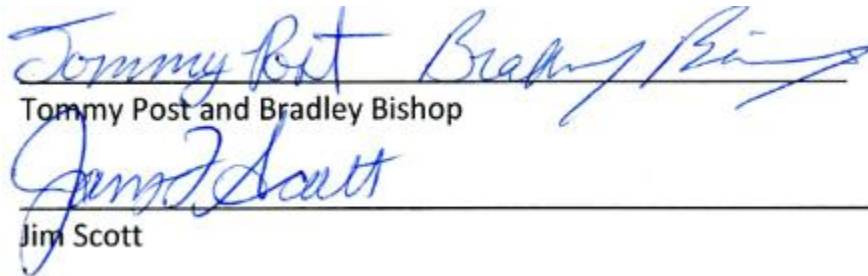 Tommy Post Bradley Bishop
Tommy Post and Bradley Bishop
James F Scott
Jim Scott